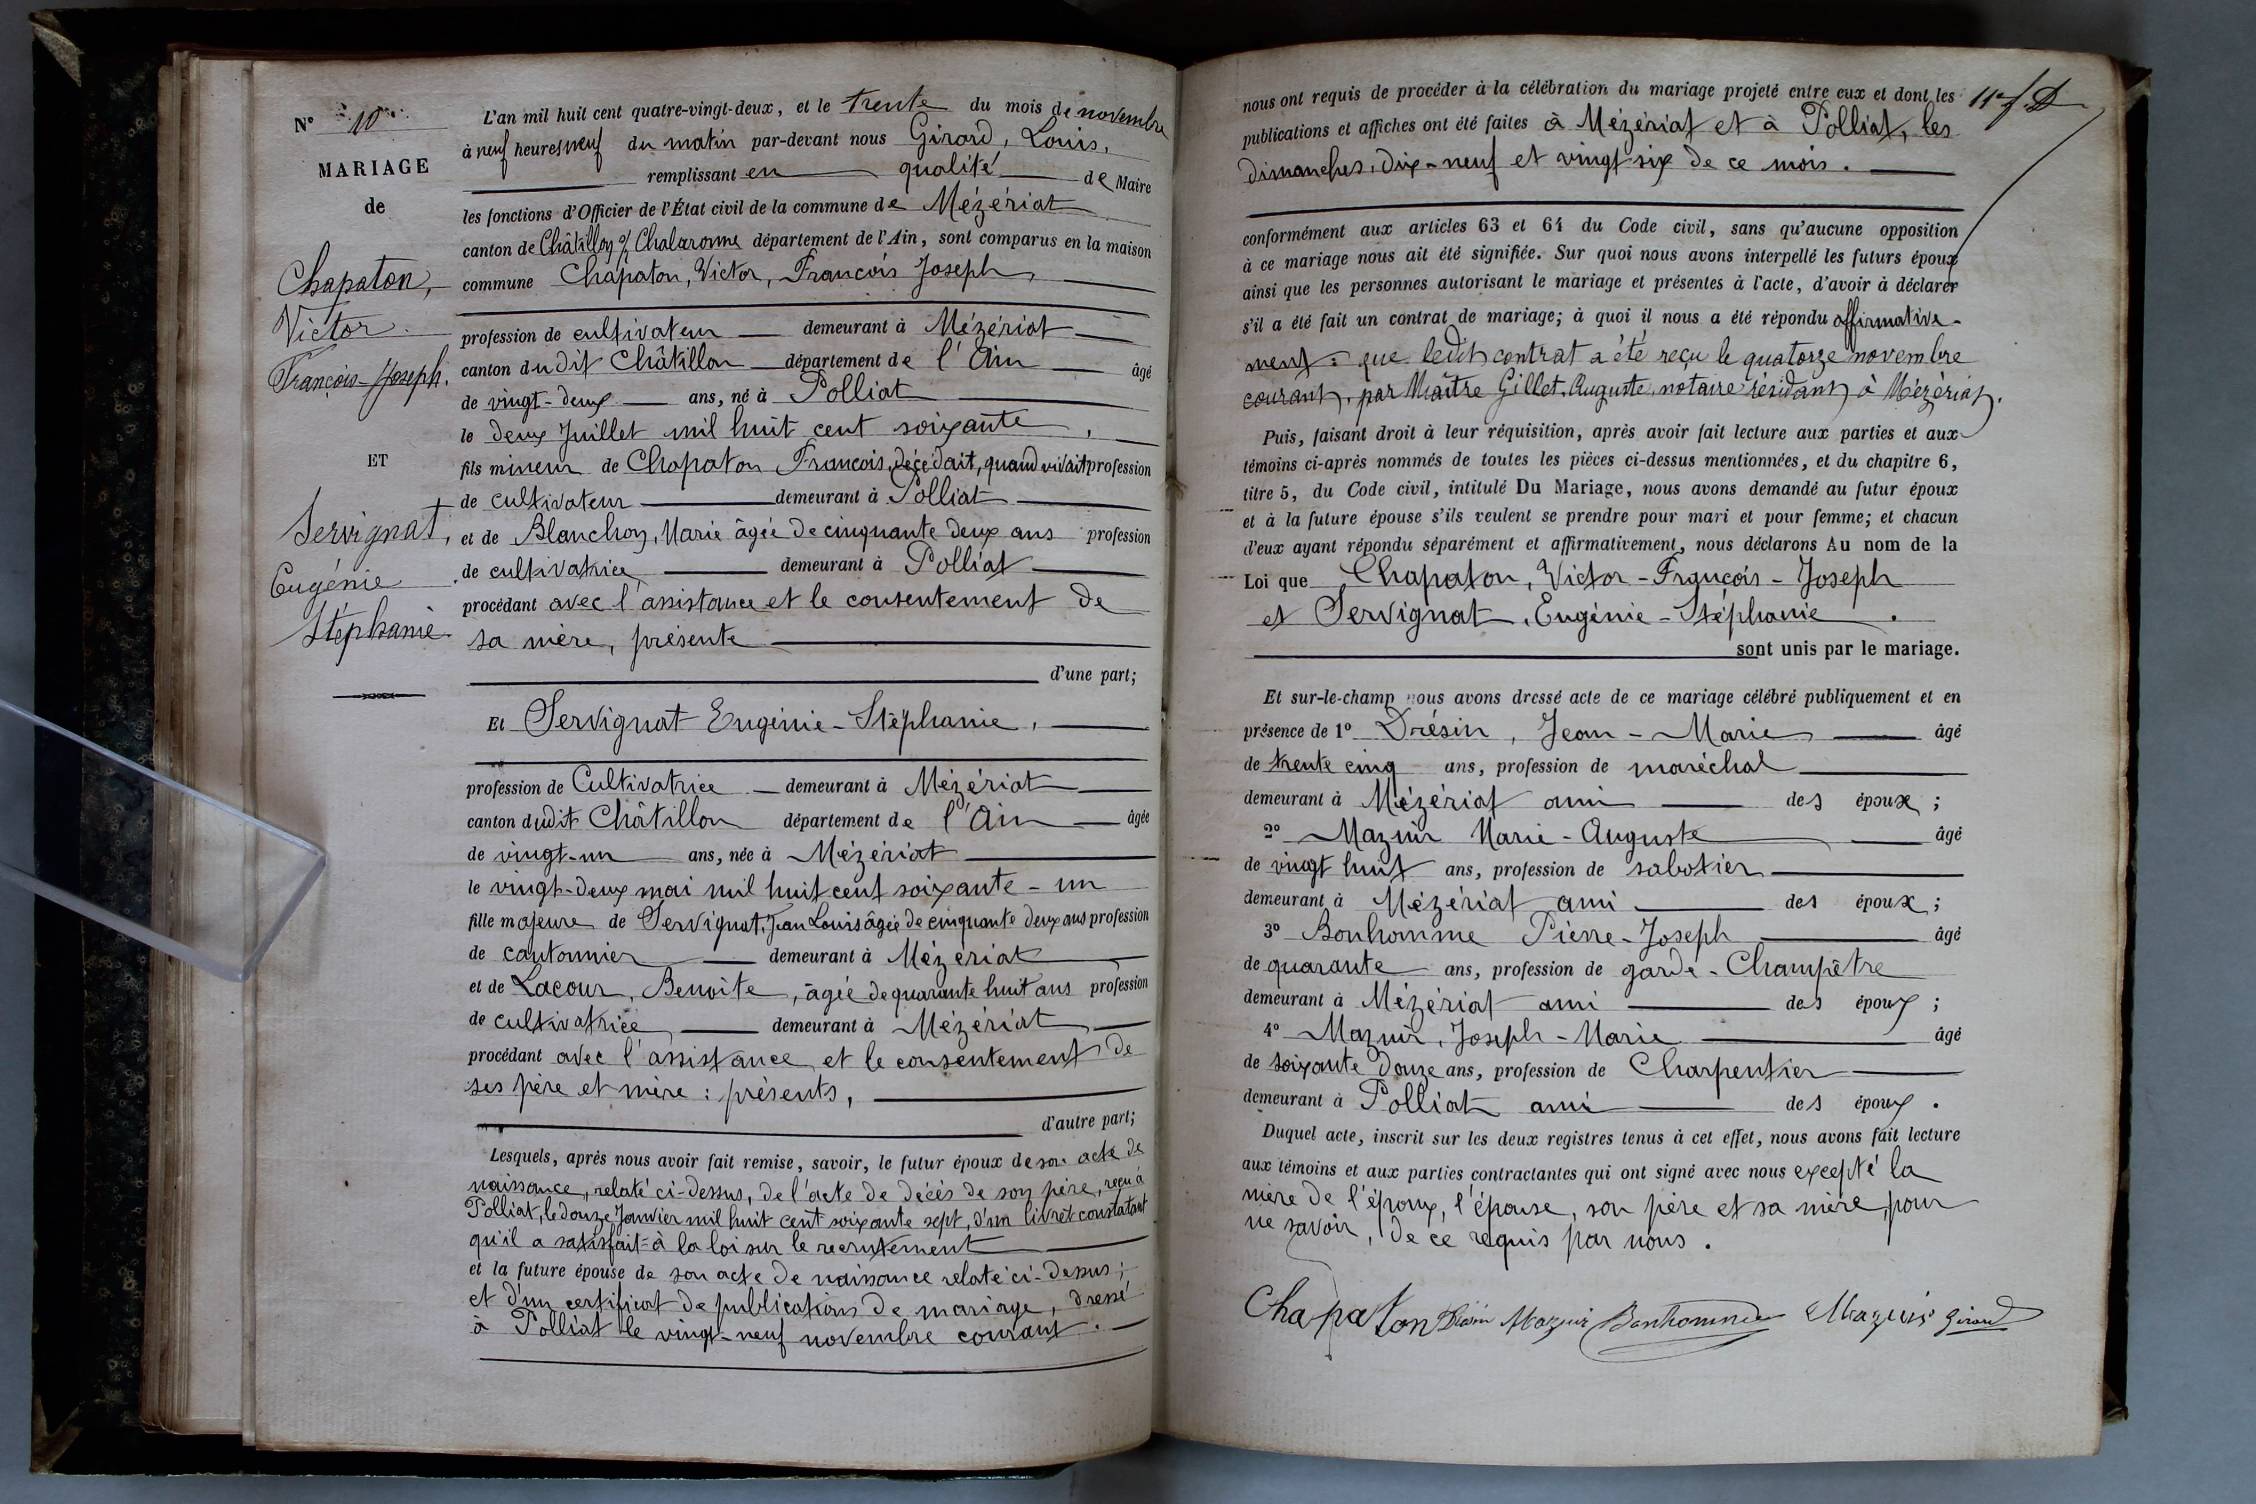 N° 10
MARIAGE
de
Chapaton,
Victor
François-Joseph.
ET
Servignat,
Eugénie
Stéphanie
L'an mil huit cent quatre-vingt-deux, et le trente du mois de novembre
à neuf heures neuf du matin par-devant nous Girard, Louis,
remplissant en qualité de Maire
les fonctions d'Officier de l'État civil de la commune de Mézériat
canton de Châtillon s/ Chalaronne département de l'Ain, sont comparus en la maison
commune Chapaton, Victor, François Joseph,
profession de cultivateur demeurant à Mézériat
canton dudit Châtillon département de l'Ain âgé
de vingt-deux ans, né à Polliat
le deux Juillet mil huit cent soixante,
fils mineur de Chapaton François, décédait, quand vivait profession
de cultivateur demeurant à Polliat
et de Blanchon, Marie âgée de cinquante deux ans profession
de cultivatrice demeurant à Polliat
procédant avec l'assistance et le consentement de
sa mère, présente
d'une part;
Et Servignat Eugénie-Stéphanie,
profession de Cultivatrice demeurant à Mézériat
canton dudit Châtillon département de l'Ain âgée
de vingt-un ans, née à Mézériat
le vingt-deux mai mil huit cent soixante-un
fille majeure de Servignat, Jean Louis âgée de cinquante deux ans profession
de cantonnier demeurant à Mézériat
et de Lacour, Benoite, âgée de quarante huit ans profession
de cultivatrice demeurant à Mézériat
procédant avec l'assistance et le consentement de
ses père et mère : présents,
d'autre part;
Lesquels, après nous avoir fait remise, savoir, le futur époux de son acte de
naissance, relaté ci-dessus, de l'acte de décès de son père, reçu à
Polliat, le douze Janvier mil huit cent soixante sept, d'un livret constatant
qu'il a satisfait à la loi sur le recrutement
et la future épouse de son acte de naissance relaté ci-dessus;
et d'un certificat de publications de mariage, dressé
à Polliat le vingt-neuf novembre courant.
nous ont requis de procéder à la célébration du mariage projeté entre eux et dont les
publications et affiches ont été faites à Mézériat et à Polliat, les
dimanches, dix-neuf et vingt six de ce mois.
conformément aux articles 63 et 64 du Code civil, sans qu'aucune opposition
à ce mariage nous ait été signifiée. Sur quoi nous avons interpellé les futurs époux
ainsi que les personnes autorisant le mariage et présentes à l'acte, d'avoir à déclarer
s'il a été fait un contrat de mariage; à quoi il nous a été répondu affirmative-
ment : que ledit contrat a été reçu le quatorze novembre
courant, par Maître Gillet, Auguste, notaire résidant à Mézériat.
Puis, faisant droit à leur réquisition, après avoir fait lecture aux parties et aux
témoins ci-après nommés de toutes les pièces ci-dessus mentionnées, et du chapitre 6,
titre 5, du Code civil, intitulé Du Mariage, nous avons demandé au futur époux
et à la future épouse s'ils veulent se prendre pour mari et pour femme; et chacun
d'eux ayant répondu séparément et affirmativement, nous déclarons Au nom de la
Loi que Chapaton, Victor-François-Joseph
et Servignat, Eugénie-Stéphanie.
sont unis par le mariage.
Et sur-le-champ nous avons dressé acte de ce mariage célébré publiquement et en
présence de 1° Drésin, Jean-Marie âgé
de trente cinq ans, profession de maréchal
demeurant à Mézériat ami des époux;
2° Mazuir Marie-Auguste âgé
de vingt huit ans, profession de sabotier
demeurant à Mézériat ami des époux;
3° Bonhomme Pierre-Joseph âgé
de quarante ans, profession de garde-Champêtre
demeurant à Mézériat ami des époux;
4° Mazuir, Joseph-Marie âgé
de soixante douze ans, profession de Charpentier
demeurant à Polliat ami des époux.
Duquel acte, inscrit sur les deux registres tenus à cet effet, nous avons fait lecture
aux témoins et aux parties contractantes qui ont signé avec nous excepté la
mère de l'époux, l'épouse, son père et sa mère, pour
ne savoir, de ce requis par nous.
Chapaton Drésin Mazuir Bonhomme Mazuir Girard